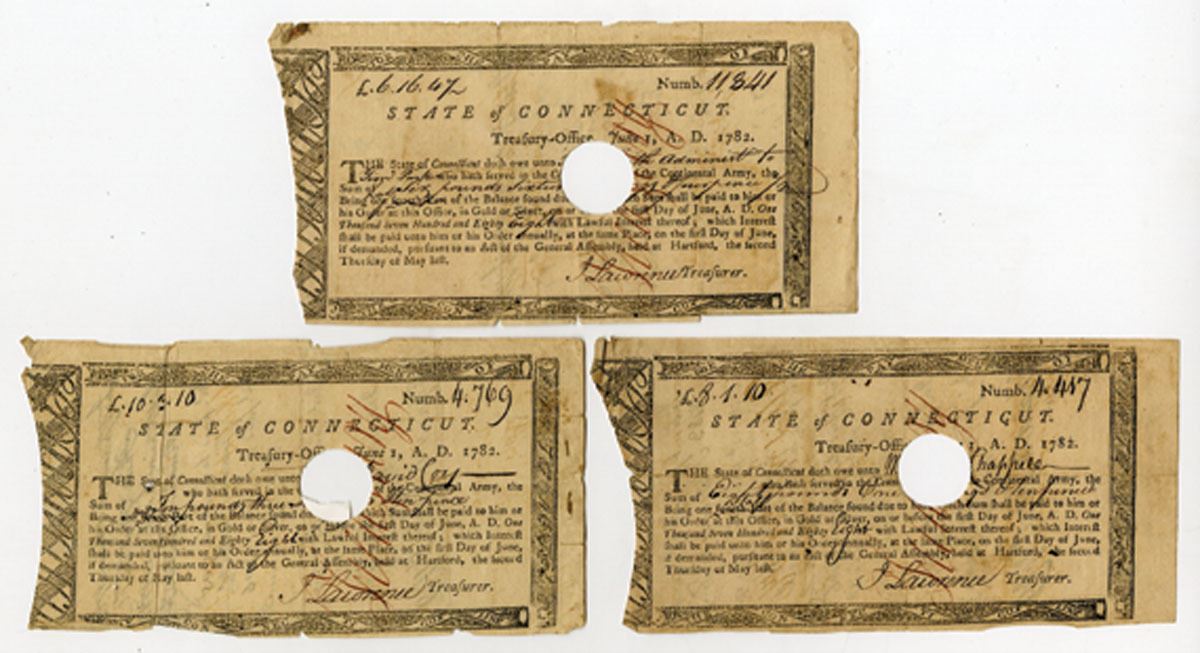 £.6.16.4½
Numb. 11,841
STATE of CONNECTICUT.
Treasury-Office, June 1, A. D. 1782.
THE State of Connecticut doth owe unto Administ to
who hath served in the Continental Army, the
Sum of six pounds sixteen
Being one of the Balance found due shall be paid to him or
his Order at this Office, in Gold or Silver, on or the first Day of June, A. D. One
Thousand Seven Hundred and Eighty Eight with Lawful Interest thereof; which Interest
shall be paid unto him or his Order annually, at the same Place, on the first Day of June,
if demanded, pursuant to an Act of the General Assembly, held at Hartford, the second
Thursday of May last.
J Lawrence Treasurer.
£.10.3.10
Numb. 4.769
STATE of CONNECTICUT.
Treasury-Off June 1, A. D. 1782.
THE State of Connecticut doth owe unto David Coy
who hath served in the Continental Army, the
Sum of Ten pounds three Ten pence
Being of the shall be paid to him or
his Order at this Office, in Gold or Silver, on or first Day of June, A. D. One
Thousand Seven Hundred and Eighty Eight with Lawful Interest thereof; which Interest
shall be paid unto him or his Order annually, at the same Place, on the first Day of June,
if demanded, pursuant to an Act of the General Assembly, held at Hartford, the second
Thursday of May last.
J Lawrence Treasurer.
£.8.1.10
Numb. 4.417
STATE of CONNECTICUT.
Treasury-Offi 1, A. D. 1782.
THE State of Connecticut doth owe unto Chappell
who hath served in the Conn Continental Army, the
Sum of Eight pounds One
Being one of the Balance found due to him shall be paid to him or
his Order at this Office, in Gold or Silver, on or before the first Day of June, A. D. One
Thousand Seven Hundred and Eighty Eight with Lawful Interest thereof; which Interest
shall be paid unto him or his Order annually, at the same Place, on the first Day of June,
if demanded, pursuant to an Act of the General Assembly, held at Hartford, the second
Thursday of May last.
J Lawrence Treasurer.